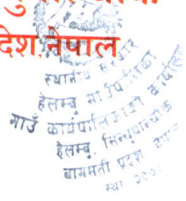 देश, नेपाल
स्थानीय सरकार
हेलम्बु गाउँपालिका
गाउँ कार्यपालिकाको कार्यालय
हेलम्बु, सिन्धुपाल्चोक
बागमती प्रदेश नेपाल